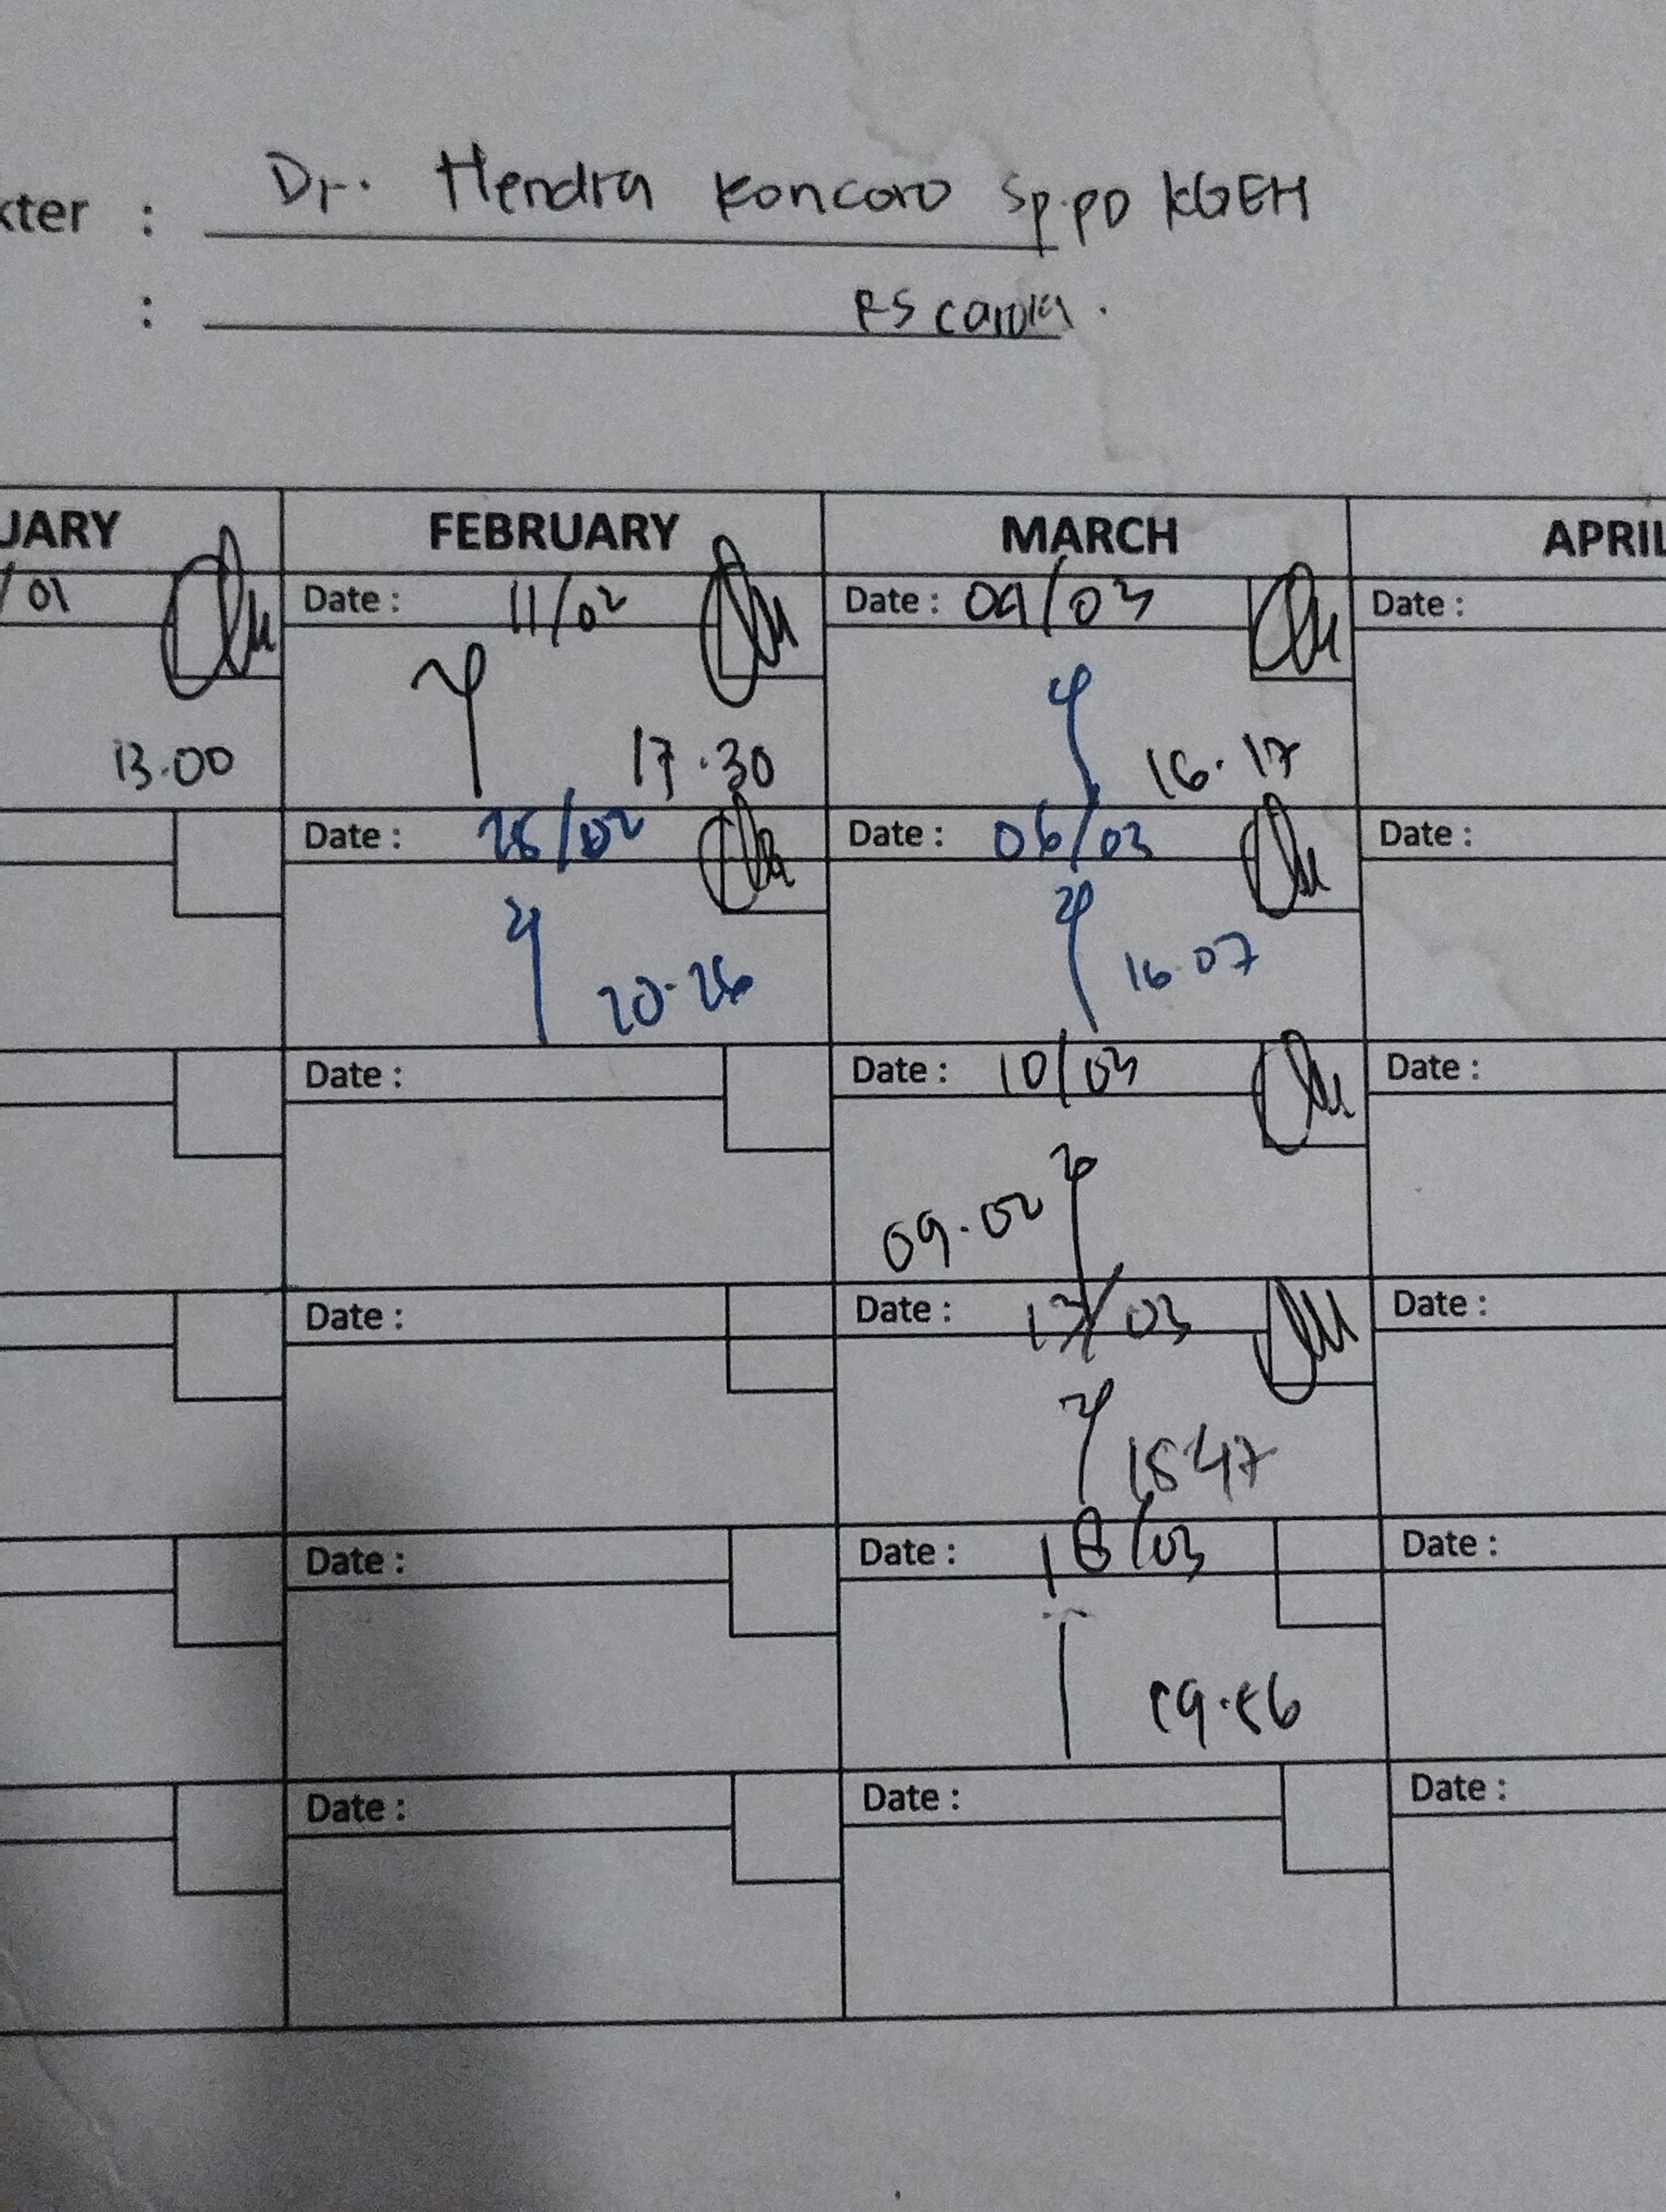 kter : Dr. Hendra Koncoro Sp.PD KGEH
: RS Carolus.
UARY FEBRUARY MARCH APRIL
/01 Date : 11/02 Date : 04/03 Date :
13.00 17.30 16.17
Date : 26/02 Date : 06/03 Date :
20.26 16.07
Date : Date : 10/03 Date :
09.02
Date : Date : 13/03 Date :
1547
Date : Date : 18/03 Date :
Date : Date : Date :